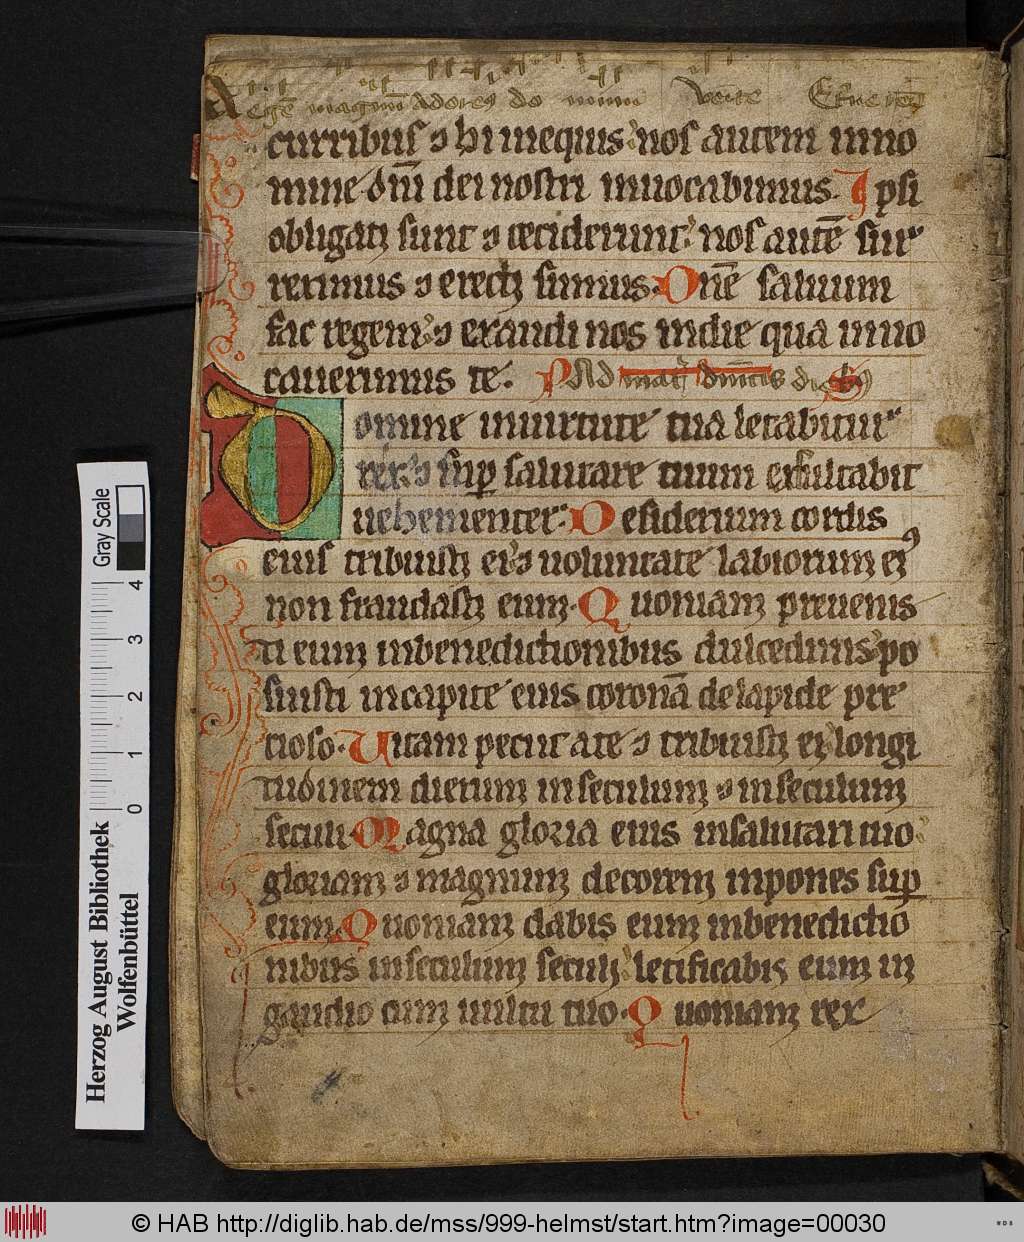 Regē magnū adorem9 dn̄m Venite
curribus ⁊ hi in equis : nos autem inno
mine dn̄i dei nostri inuocabimus. Ipsi
obligati sunt ⁊ ceciderunt : nos autē sur
reximus ⁊ erecti sumus. Dn̄e saluum
fac regem : ⁊ exaudi nos in die qua inuo
cauerimus te. Ad
Domine in uirtute tua letabitur
rex : ⁊ sup salutare tuum exsultabit
uehementer : Desiderium cordis
eius tribuisti ei : ⁊ uoluntatē labiorum ei9
non fraudasti eum. Quoniam preuenis
ti eum in benedictionibus dulcedinis : po
suisti in capite eius coronā de lapide pre
tioso. Uitam peciit a te ⁊ tribuisti ei longi
tudinem dierum in seculum ⁊ in seculum
seculi. Magna gloria eius in salutari tuo :
gloriam ⁊ magnum decorem inpones sup
eum. Quoniam dabis eum in benedictio
nibus in seculum seculi : letificabis eum in
gaudio cum uultu tuo. Quoniam rex
Herzog August Bibliothek
Wolfenbüttel
0 1 2 3 4
Gray Scale
© HAB http://diglib.hab.de/mss/999-helmst/start.htm?image=00030